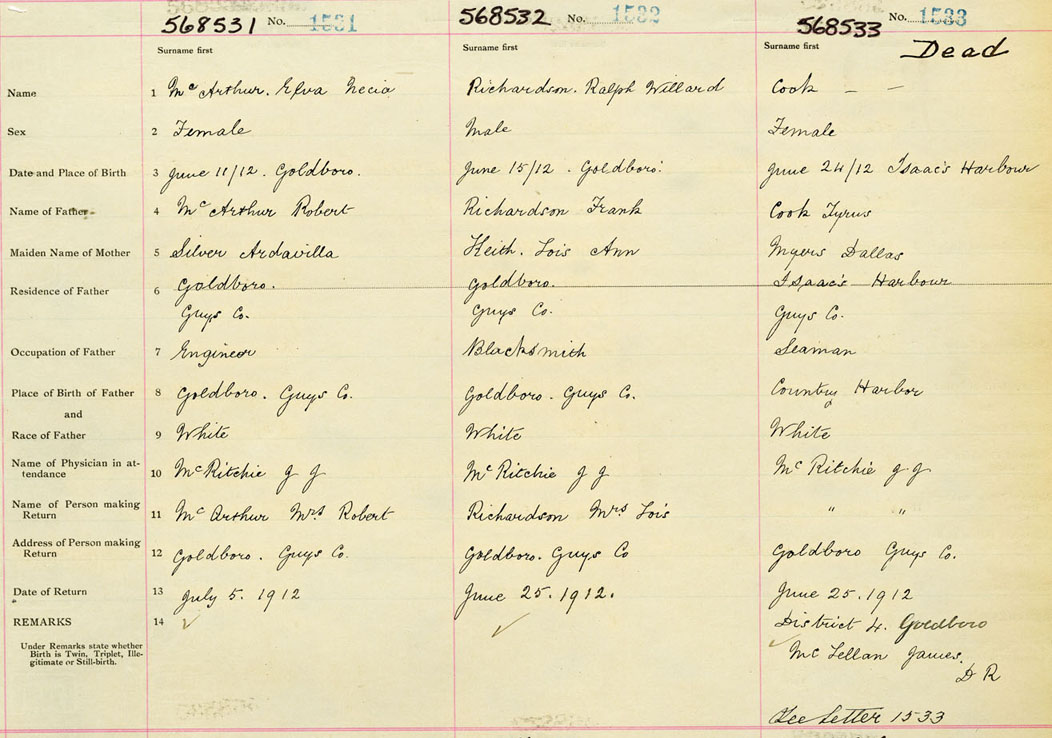 568531 No. 1531
568532 No. 1532
568533 No. 1533
Surname first
Surname first
Surname first
Dead
Name 1 McArthur. Elva Necia
Richardson. Ralph Willard
Cook — —
Sex 2 Female
Male
Female
Date and Place of Birth 3 June 11/12. Goldboro.
June 15/12. Goldboro.
June 24/12 Isaac's Harbour
Name of Father 4 McArthur Robert
Richardson Frank
Cook Tyrus
Maiden Name of Mother 5 Silver Ardavilla
Keith. Lois Ann
Myers Dallas
Residence of Father 6 Goldboro.
Guys Co.
Goldboro.
Guys Co.
Isaac's Harbour
Guys Co.
Occupation of Father 7 Engineer
Blacksmith
Seaman
Place of Birth of Father 8 Goldboro. Guys Co.
Goldboro. Guys Co.
Country Harbor
and
Race of Father 9 White
White
White
Name of Physician in at-
tendance 10 McRitchie J J
McRitchie J J
McRitchie J J
Name of Person making
Return 11 McArthur Mrs Robert
Richardson Mrs Lois
" "
Address of Person making
Return 12 Goldboro. Guys Co.
Goldboro. Guys Co
Goldboro Guys Co.
Date of Return 13 July 5. 1912
June 25. 1912.
June 25. 1912
REMARKS 14 ✓
✓
District 4. Goldboro
✓ McLellan James.
D R
Under Remarks state whether
Birth is Twin, Triplet, Ille-
gitimate or Still-birth.
See Letter 1533